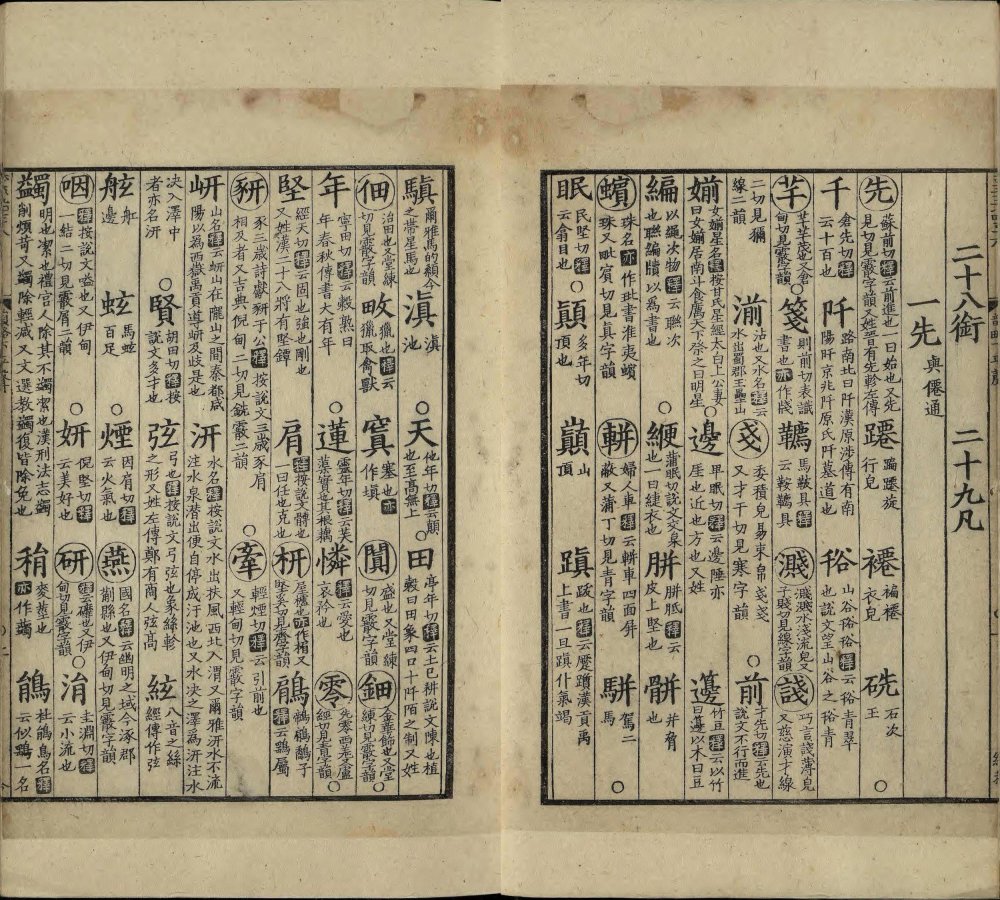 二十八銜　二十九凡
一先與僊通
先蘇前切釋云前進也一曰始也又先見切見霰字韻又姓晉有先軫左傳 蹮蹁蹮旋行皃 褼褊褼衣皃 硟石次玉○
千倉先切釋云十百也 阡路南北曰阡漢原涉傳有南陽阡京兆阡原氏阡墓道也 谸山谷谸谸釋云谸青翠也說文望山谷之谸青
芊芊芊茂也又倉甸切見霰字韻○ 箋則前切表識書也亦作牋 韉馬鞍具釋云鞍韉具 濺濺濺水淺流皃又子賤切見線字韻 諓巧言諓薄皃又慈演才線
二切見獮線二韻 湔沾也又水名釋云水出蜀郡玉壘山 戔委積皃易束帛戔戔又才干切見寒字韻○ 前才先切釋云先也說文不行而進
媊女媊星名釋按甘氏星經太白上公妻曰女媊居南斗食厲天下祭之曰明星○ 邊甲眠切釋云邊陲亦崖也近也方也又姓 籩竹豆釋云以竹曰籩以木曰豆
編以繩次物釋云聮次也聮編牘以為書也○ 緶蒲眠切說文交枲也一曰緁衣也 胼胼胝釋云皮上堅也 骿并脅也
蠙珠名亦作玭書淮夷蠙珠又毗賓切見真字韻○ 軿婦人車釋云軿車四面屏蔽又蒲丁切見青字韻 駢駕二馬○
眠民堅切釋云翕目也○ 顛多年切頂也 巓山頂 蹎跋也釋云蹙蹎漢貢禹上書一旦蹎仆氣竭
驒爾雅馬的顙今之帶星馬也 滇滇池○ 天他年切釋云顛也至高無上○ 田亭年切釋云土巳耕說文陳也植穀曰田象四口十阡陌之制又姓
佃治田也又堂練切見霰字韻 畋獵也釋云獵取禽獸 窴塞也亦作塡 闐盛也又堂練切見霰字韻 鈿金華飾也又堂練切見霰字韻○
年寧田切釋云穀熟曰年春秋傳書大有年○ 蓮靈年切釋云芙蕖實其根藕 憐釋云愛也哀矜也 零先零西羌又盧經切見青字韻
堅經天切釋云固也強也剛也又姓漢二十八將有堅鐔 肩釋按說文髆也一曰任也克也 枅屋櫨亦作㭕又堅奚切見齊字韻 鵳鶺鵳鷂子釋云鷂屬
豜豕三歲詩獻豜于公釋按說文三歲豕肩相及者又吉典倪甸二切見銑霰二韻○ 牽輕煙切釋云引前也又輕甸切見霰字韻
岍山名釋云岍山在隴山之間秦都咸陽以為西嶽禹貢導岍及歧是也 汧水名釋按說文水出扶風西北入渭又爾雅汧水不流注水泉潛出便自停成汙池也又水决之澤為汧注水
决入澤中者亦名汧○ 賢胡田切釋按說文多才也 弦弓也釋按說文弓弦也象絲軫之形又姓左傳鄭有商人弦高 絃八音之絲經傳作弦
舷舩邊 蚿馬蚿百足○ 煙因肩切釋云火氣也 燕國名釋云幽明之域今涿郡薊縣也又伊甸切見霰字韻
咽釋按說文嗌也又伊甸一結二切見霰屑二韻○ 妍倪堅切釋云美好也 研釋云礦也又伊甸切見霰字韻○ 涓圭淵切釋云小流也
蠲明也潔也禮宫人除其不蠲潔也漢刑法志蠲削煩苛又蠲除輕減又文選教蠲復皆除免也 稍麥莖也亦作䅌 鵑杜鵑鳥名釋云似鷂一名